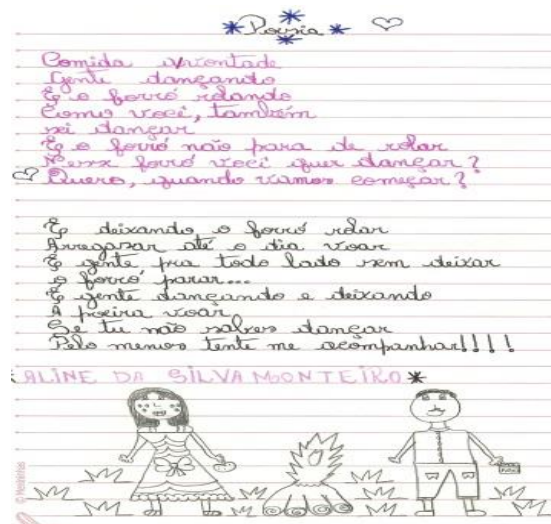 Poesia
Comida a vontade
Gente dançando
E o forró rolando
Como você, também
sei dançar
E o forró não para de rolar
Nesse forró você quer dançar?
Quero, quando vamos começar?
E deixando o forró rolar
Arregazar até o dia voar
E gente pra todo lado sem deixar
o forró parar...
E gente dançando e deixando
A poeira voar
Se tu não salves dançar
Pelo menos tente me acompanhar!!!!
ALINE DA SILVA MONTEIRO